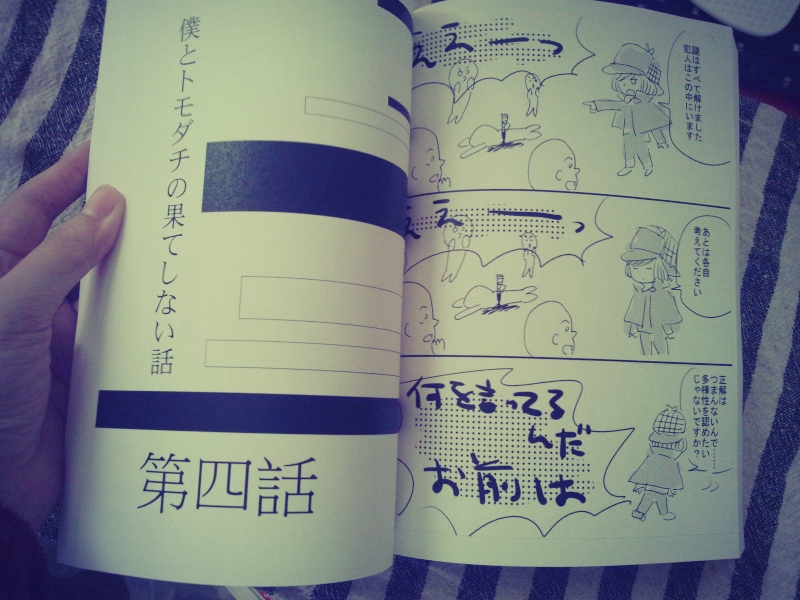 僕とトモダチの果てしない話
第四話
謎はすべて解けました
犯人はこの中にいます
ええーっ
あとは各自
考えてください
ええーっ
正解は
つまんないんで……
多様性を認めたい
じゃないですか?
何を言ってる
んだ
お前は